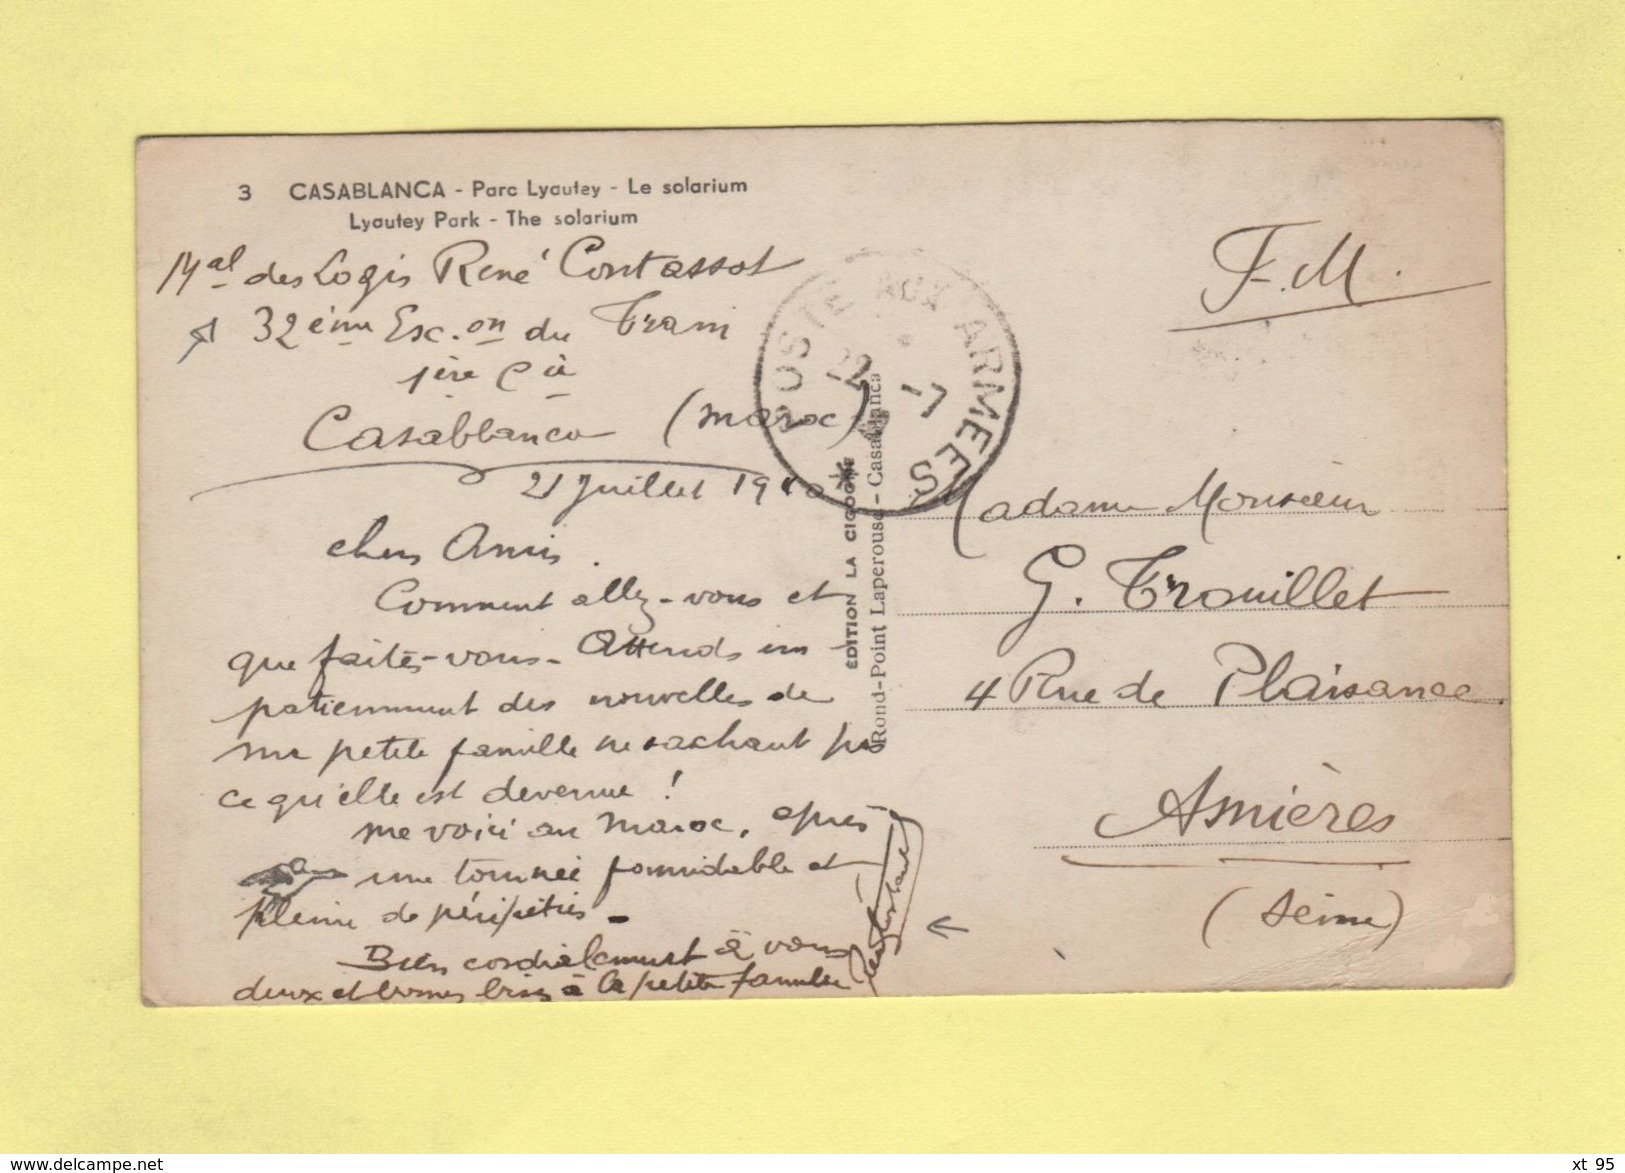 3 CASABLANCA - Parc Lyautey - Le solarium
Lyautey Park - The solarium
Mal des Logis René Contassot
32ème Esc.on du Train
1ère Cie
Casablanca (Maroc)
21 Juillet 1940
chers Amis.
Comment allez-vous et
que faites-vous - Attends im
patiemment des nouvelles de
ma petite famille ne sachant pas
ce qu'elle est devenue !
me voici au Maroc, après
une tournée formidable et
pleine de péripéties -
Bien cordialement à vous
deux et bonnes bises à la petite famille
POSTE AUX ARMEES
22 -7
*
EDITION LA CIGOGNE
Rond-Point Laperouse - Casablanca
F.M.
Madame Monsieur
G. Trouillet
4 Rue de Plaisance
Asnières
(Seine)
xt 95